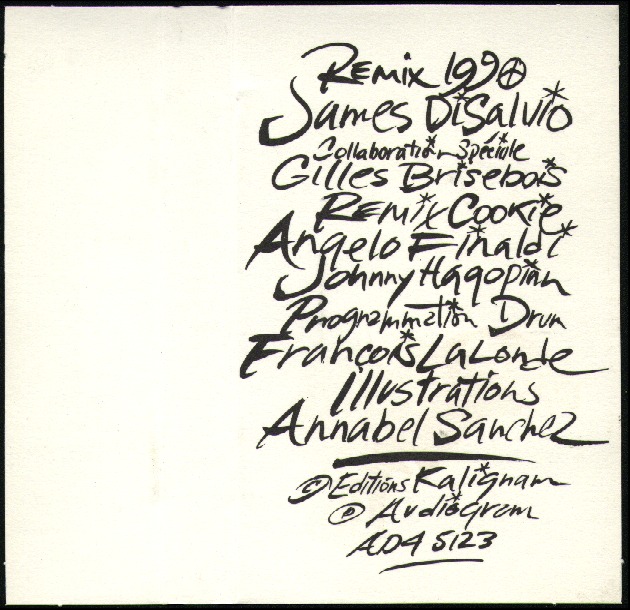 Remix 1990
James DiSalvio
Collaboration Spéciale
Gilles Brisebois
Remix Cookie
Angelo Finaldi
Johnny Hagopian
Programmation Drum
François LaLonde
Illustrations
Annabel Sanchez
© Editions Kalignam
℗ Audiogram
AD4 5123